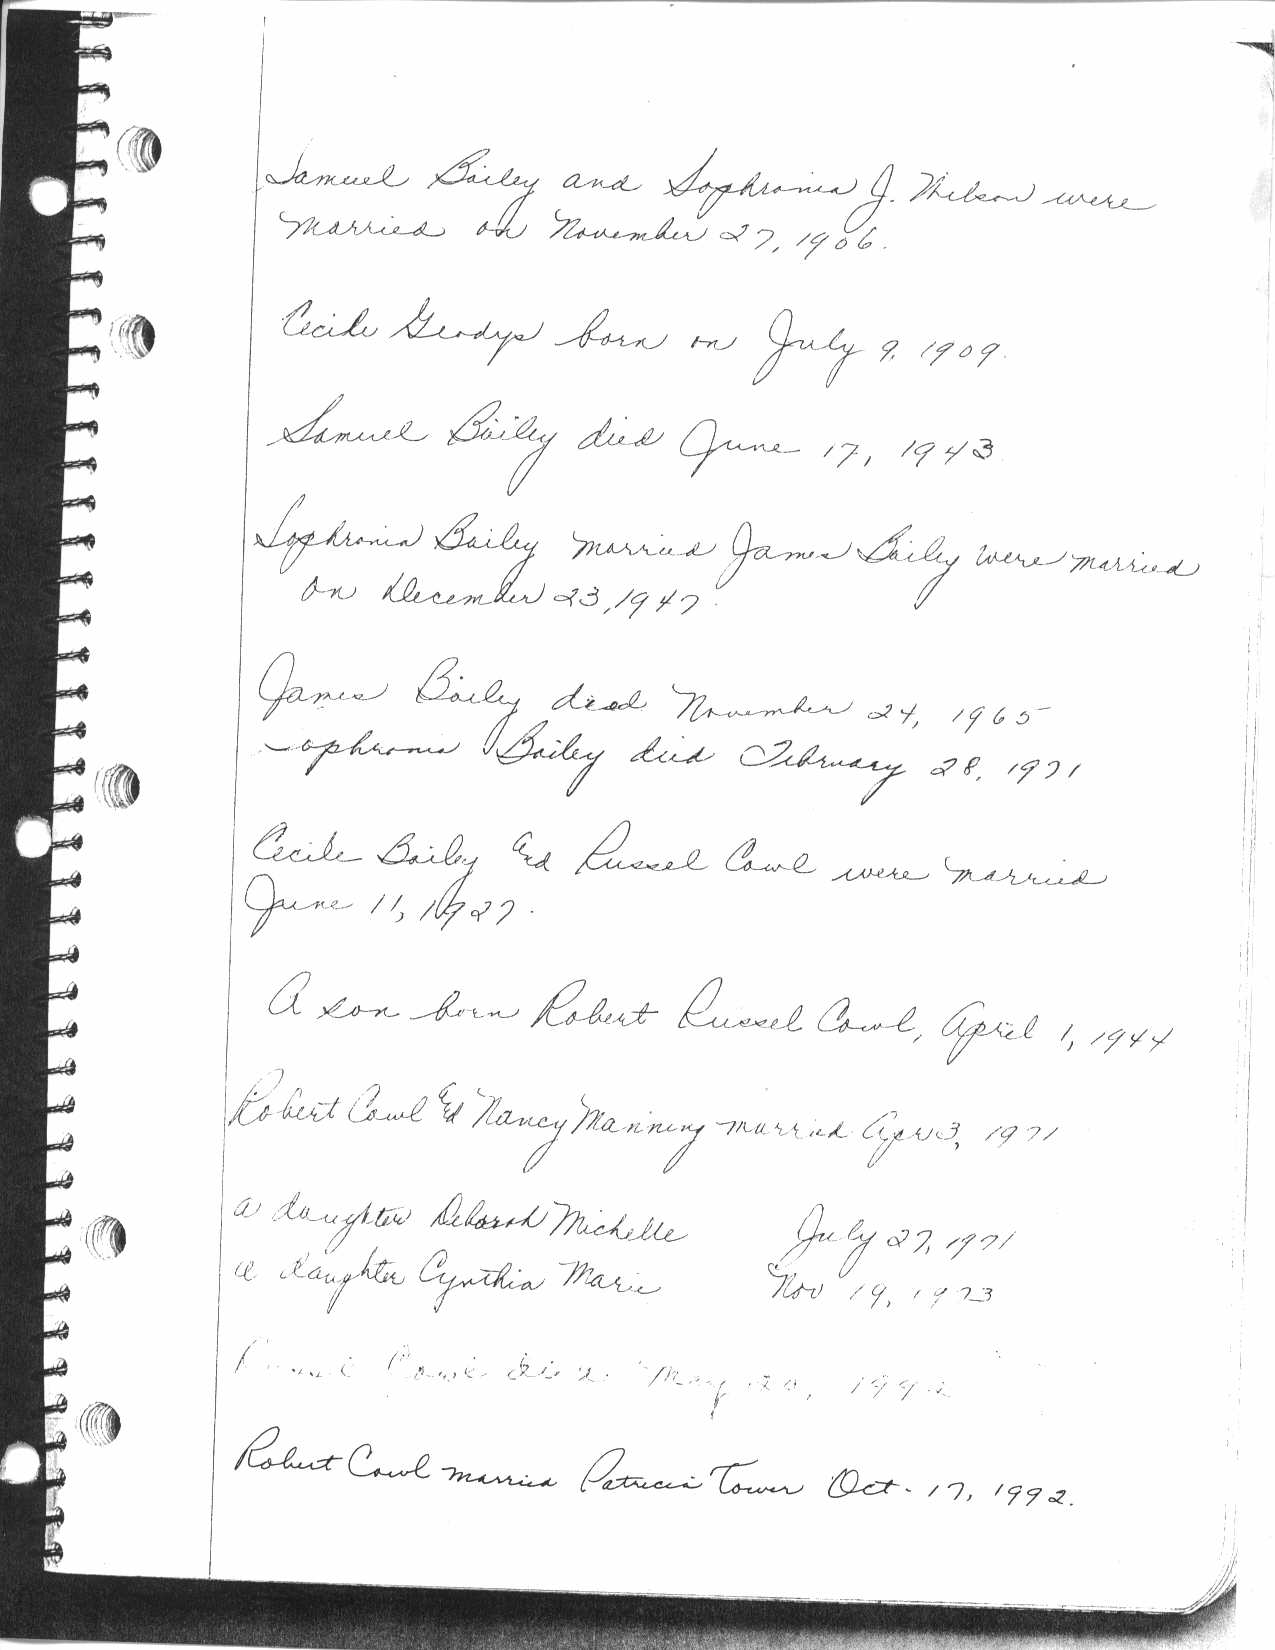 Samuel Bailey and Sophronia J. Wilson were
married on November 27, 1906.
Cecile Gladys born on July 9, 1909.
Samuel Bailey died June 17, 1943
Sophronia Bailey married James Bailey were married
on December 23, 1947.
James Bailey died November 24, 1965
Sophronia Bailey died February 28, 1971
Cecile Bailey and Russel Cowl were married
June 11, 1927.
A son born Robert Russel Cowl, April 1, 1944
Robert Cowl and Nancy Manning married Apr 3, 1971
a daughter Deborah Michelle July 27, 1971
a daughter Cynthia Marie Nov 19, 1973
Cowl died May 20, 1992
Robert Cowl married Patricia Tower Oct. 17, 1992.